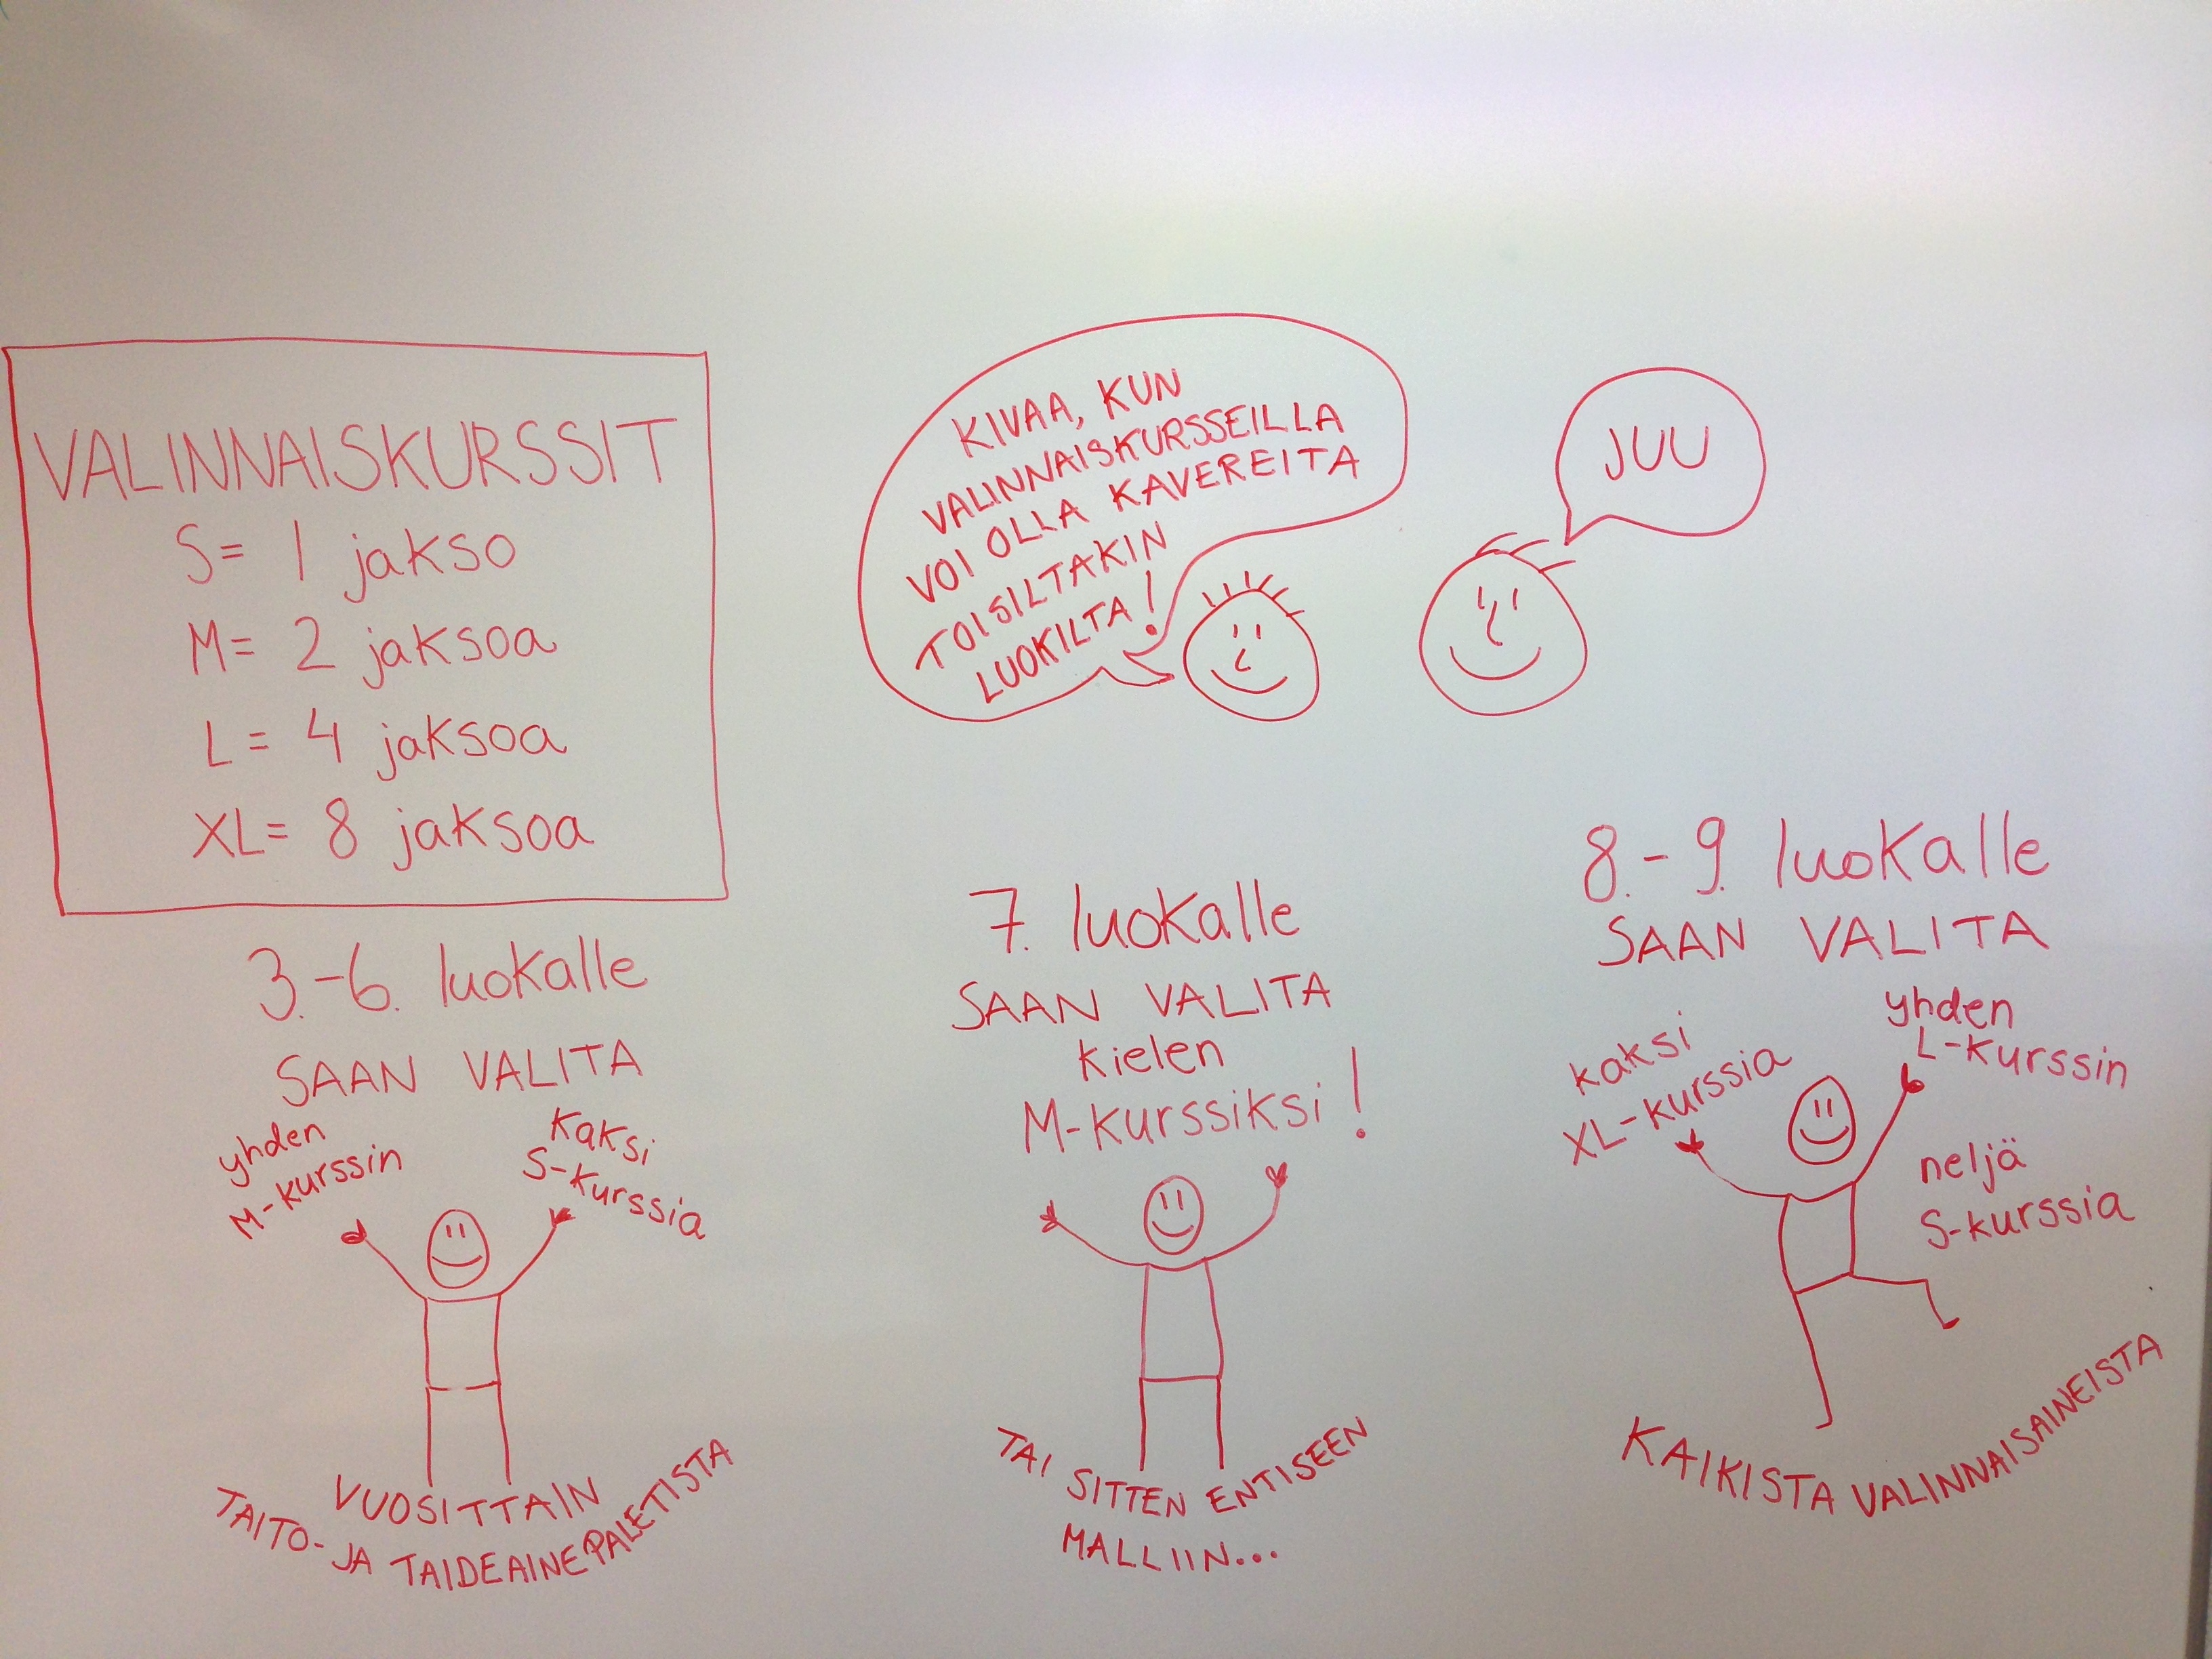 VALINNAISKURSSIT
S= 1 jakso
M= 2 jaksoa
L= 4 jaksoa
XL= 8 jaksoa
KIVAA, KUN
VALINNAISKURSSEILLA
VOI OLLA KAVEREITA
TOISILTAKIN
LUOKILTA!
JUU
3.-6. luokalle
SAAN VALITA
yhden
M-kurssin
kaksi
S-kurssia
VUOSITTAIN
TAITO- JA TAIDEAINEPALETISTA
7. luokalle
SAAN VALITA
kielen
M-kurssiksi!
TAI SITTEN ENTISEEN
MALLIIN...
8.-9. luokalle
SAAN VALITA
kaksi
XL-kurssia
yhden
L-kurssin
neljä
S-kurssia
KAIKISTA VALINNAISAINEISTA